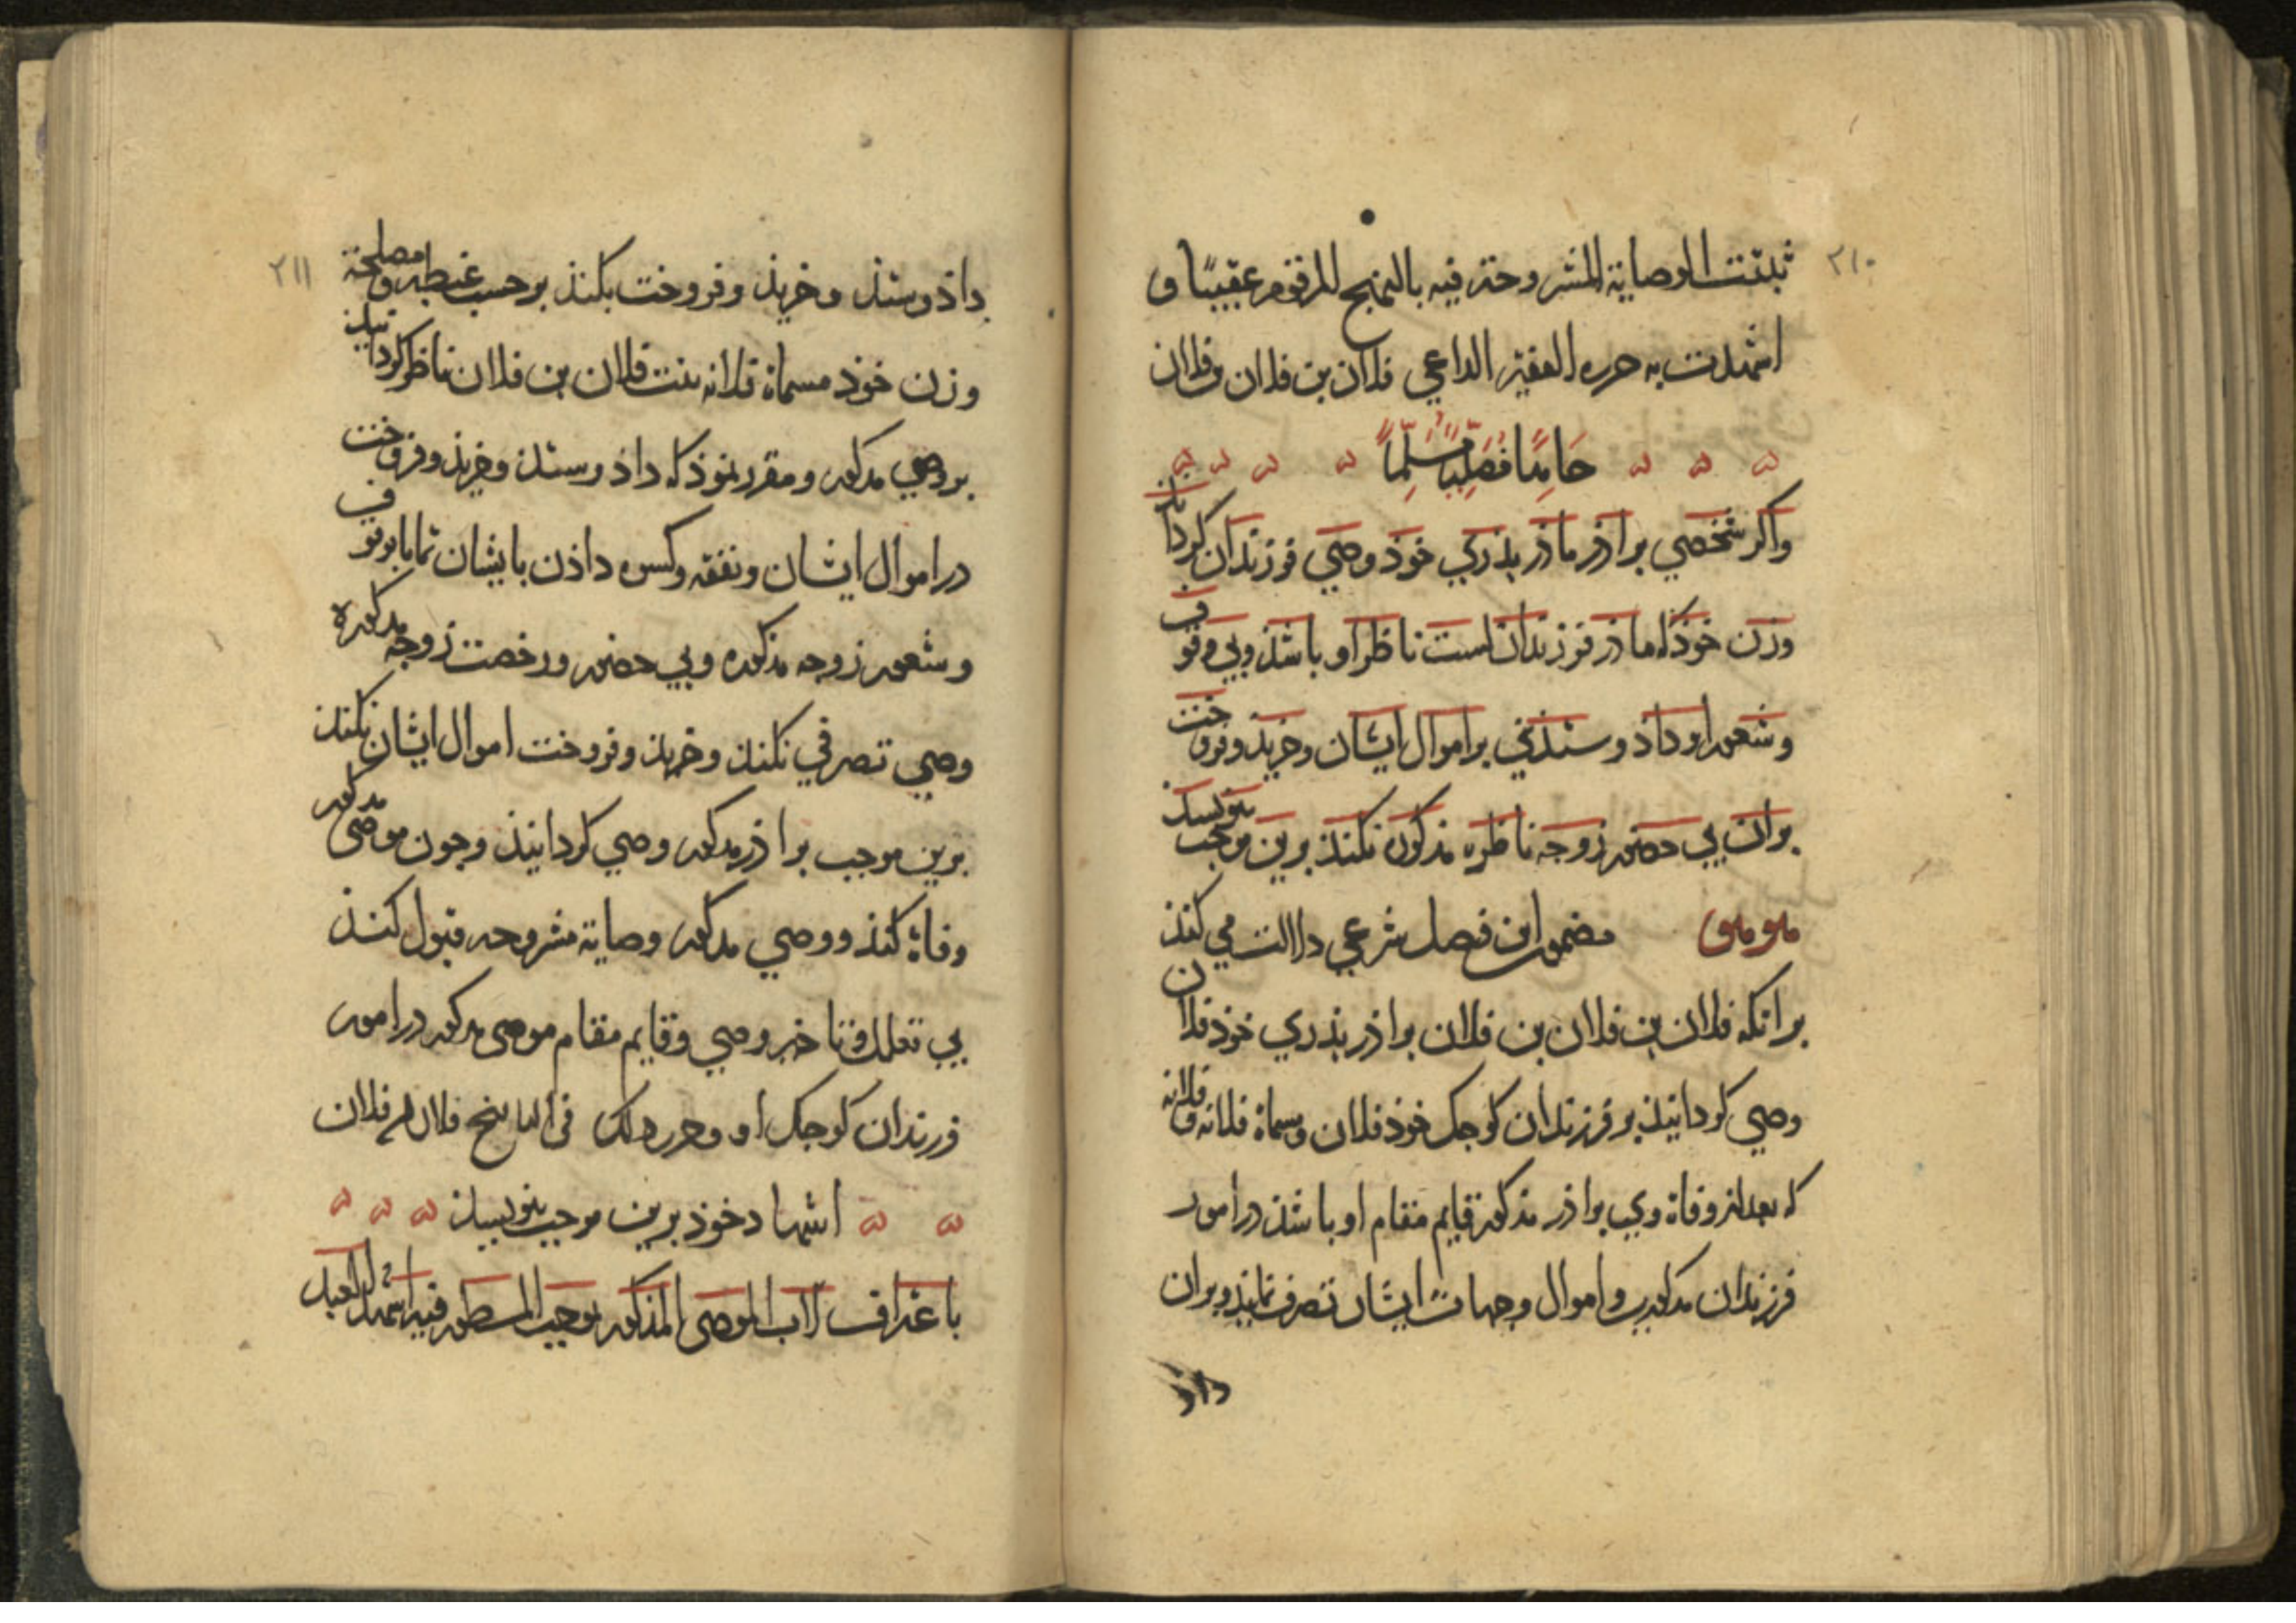 ٢١٠
ثبتت الوصایة المشروحة فیه بالنهج المرقوم عقیبًا و
اشهدت به حرره الفقیر الداعي فلان بن فلان بن فلان
حَامِدًا مُصَلِّیًا مُسَلِّمًا
واکر شخصي براذر ماذر بذري خوذ وصي فرزندان کرداند
وزن خوذ که ماذر فرزندان است ناظر او باشذ و بي وقوف
وشعور او داذ وستذي بر اموال ایشان وخریذ وفروخت
بران بي حضور زوجه ناظره مذکوره نکنذ برین موجب بنویسد
مضمون این فصل شرعي دلالت مي کنذ
بر انکه فلان بن فلان بن فلان براذر بذري خوذ فلان
وصي کردانیذ بر فرزندان کوجک خوذ فلان ومسماة فلانه وفلانه
که بعد از وفاة وي براذر مذکور قایم مقام او باشذ در امور
فرزندان مذکورین واموال وجهات ایشان تصرف نمایذ وبران
داذ
٢١١
داذ وستذ وخریذ وفروخت بکنذ بر حسب غبطه ومصلحة
وزن خوذ مسماة فلانه بنت فلان بن فلان ناظر کردانید
بر وصي مذکور ومقرر نموذ که داذ وستذ وخریذ وفروخت
در اموال ایشان ونفقه وکسوه داذن بایشان تماما بوقوف
وشعور زوجه مذکوره وبي حضور ورخصت زوجه مذکوره
وصي تصرفي نکنذ وخریذ وفروخت اموال ایشان نکنذ
برین موجب براذر مذکور وصي کردانیذ وجون موصی مذکور
وفاة کنذ ووصي مذکور وصایة مشروحه قبول کنذ
بي تعلل وتاخیر وصي وقایم مقام موصی مذکور در امور
فرزندان کوجک او وحرر ذلک في فلان
اشهاد خوذ برین موجب بنویسذ
باعتراف الاب الموصی المذکور بموجب المسطور فیه اشهد العبد